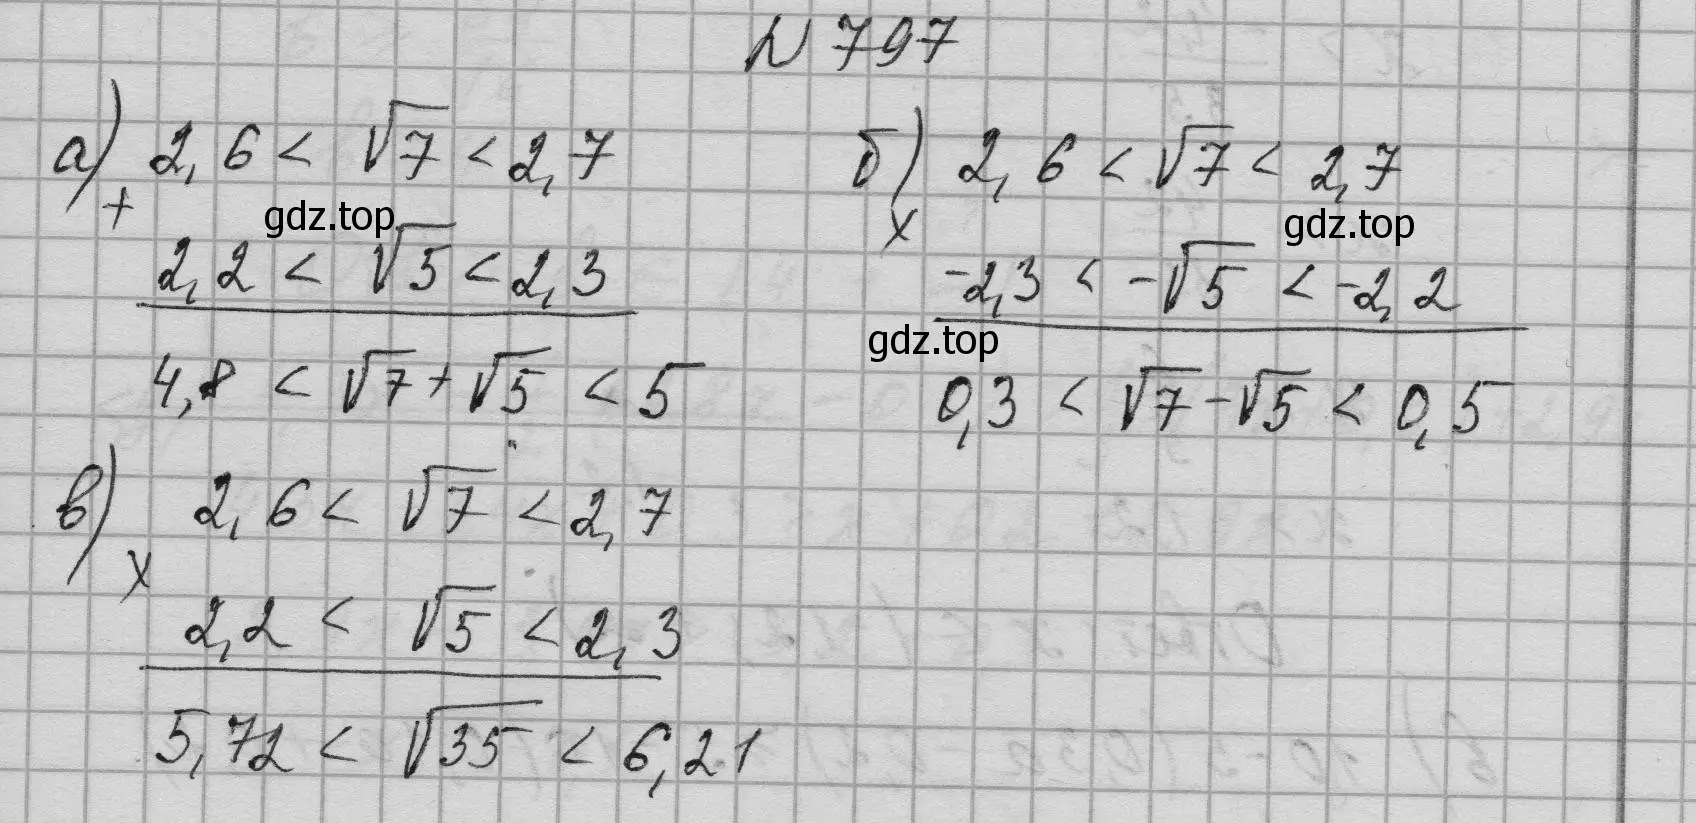 № 797
а) 2,6 < √7 < 2,7
+
gdz.top
2,2 < √5 < 2,3
4,8 < √7 + √5 < 5
б) 2,6 < √7 < 2,7
х
gdz.top
-2,3 < -√5 < -2,2
gdz.top
0,3 < √7 - √5 < 0,5
в) 2,6 < √7 < 2,7
х
2,2 < √5 < 2,3
5,72 < √35 < 6,21